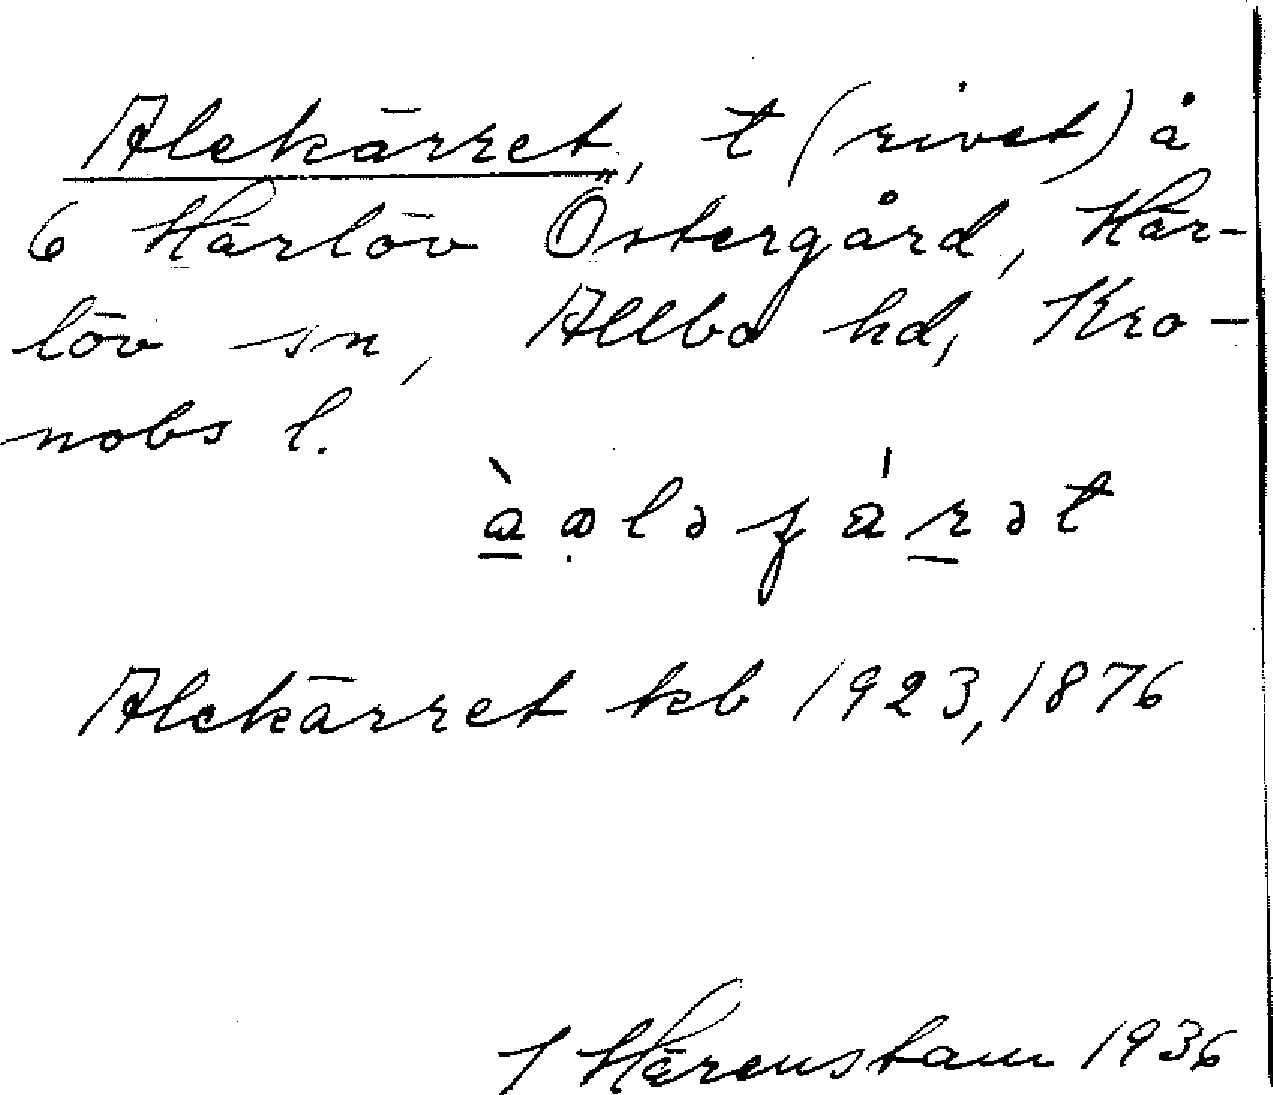 Alekärret, t (rivet) å
6 Härlöv Östergård, Här-
löv sn, Allbo hd, Kro-
nobs l.
Alekärret kb 1923, 1876
J Härenstam 1936